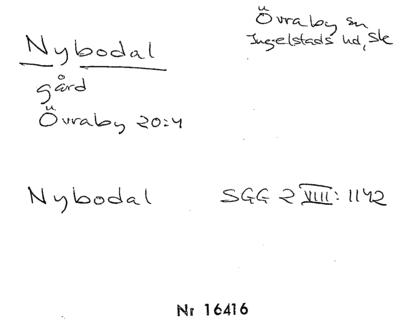 Nybodal
gård
Övraby 20:4
Övraby sn
Ingelstads hd, Sk
Nybodal SGG 2 VIII: 1142
Nr 16416